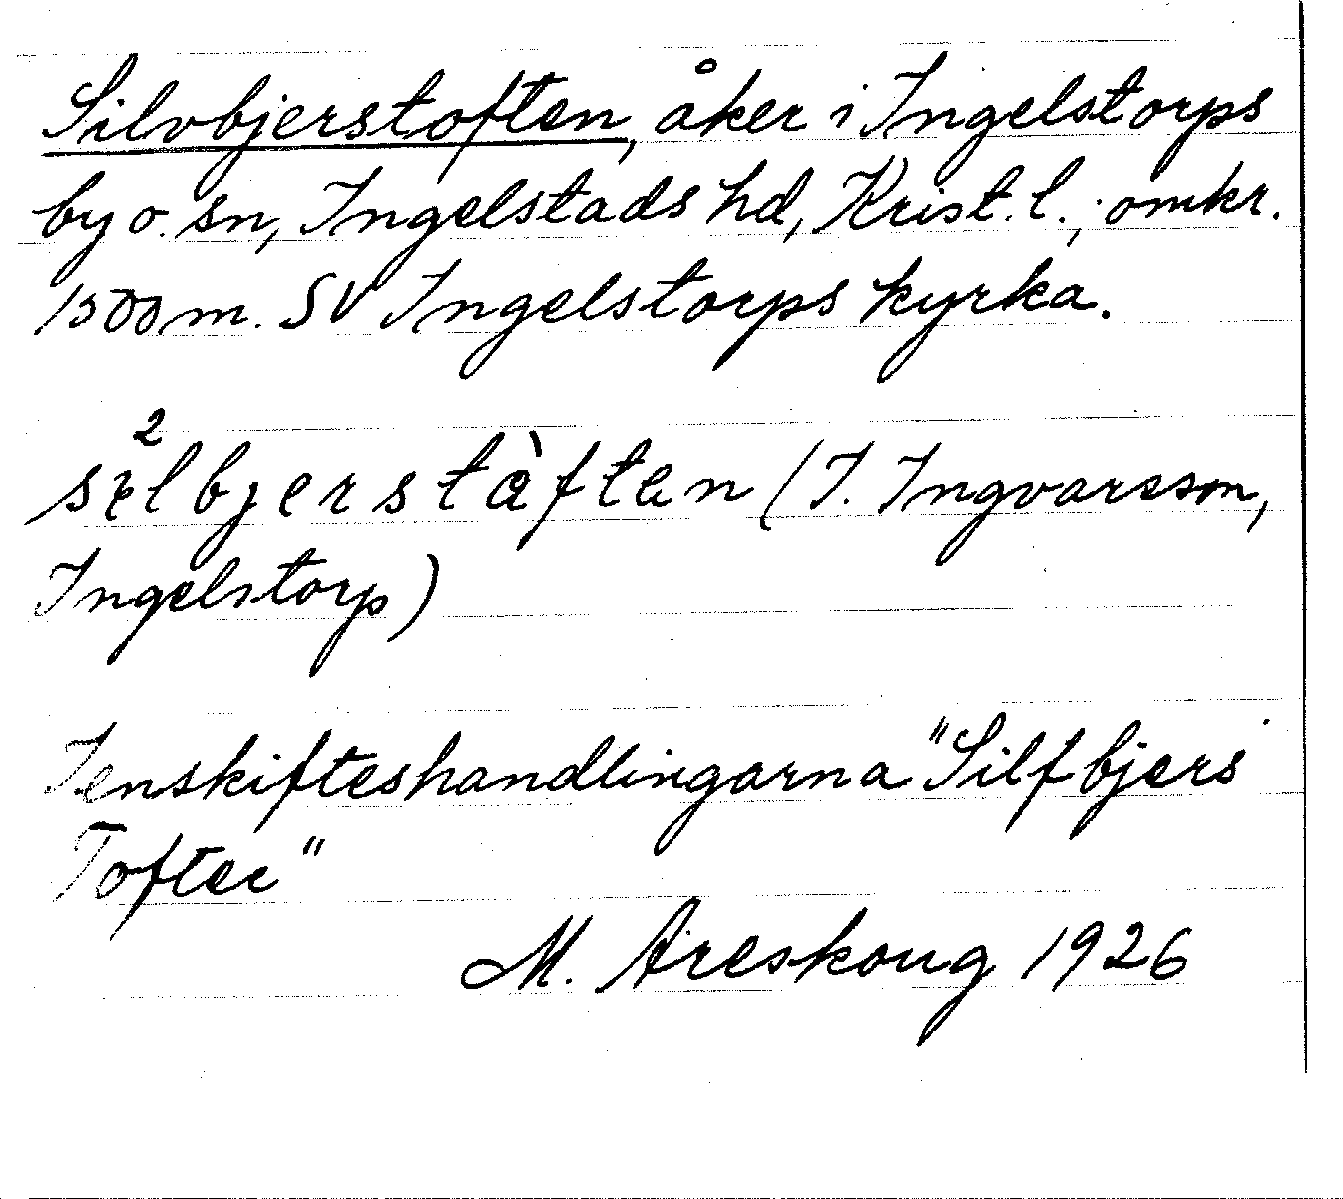 Silvbjerstoften, åker i Ingelstorps
by o. sn, Ingelstads hd, Krist. l.; omkr.
1500 m. SV Ingelstorps kyrka.
(I. Ingvarsson,
Ingelstorp)
I enskifteshandlingarna "Silfbjers
Tofter"
M. Areskoug 1926